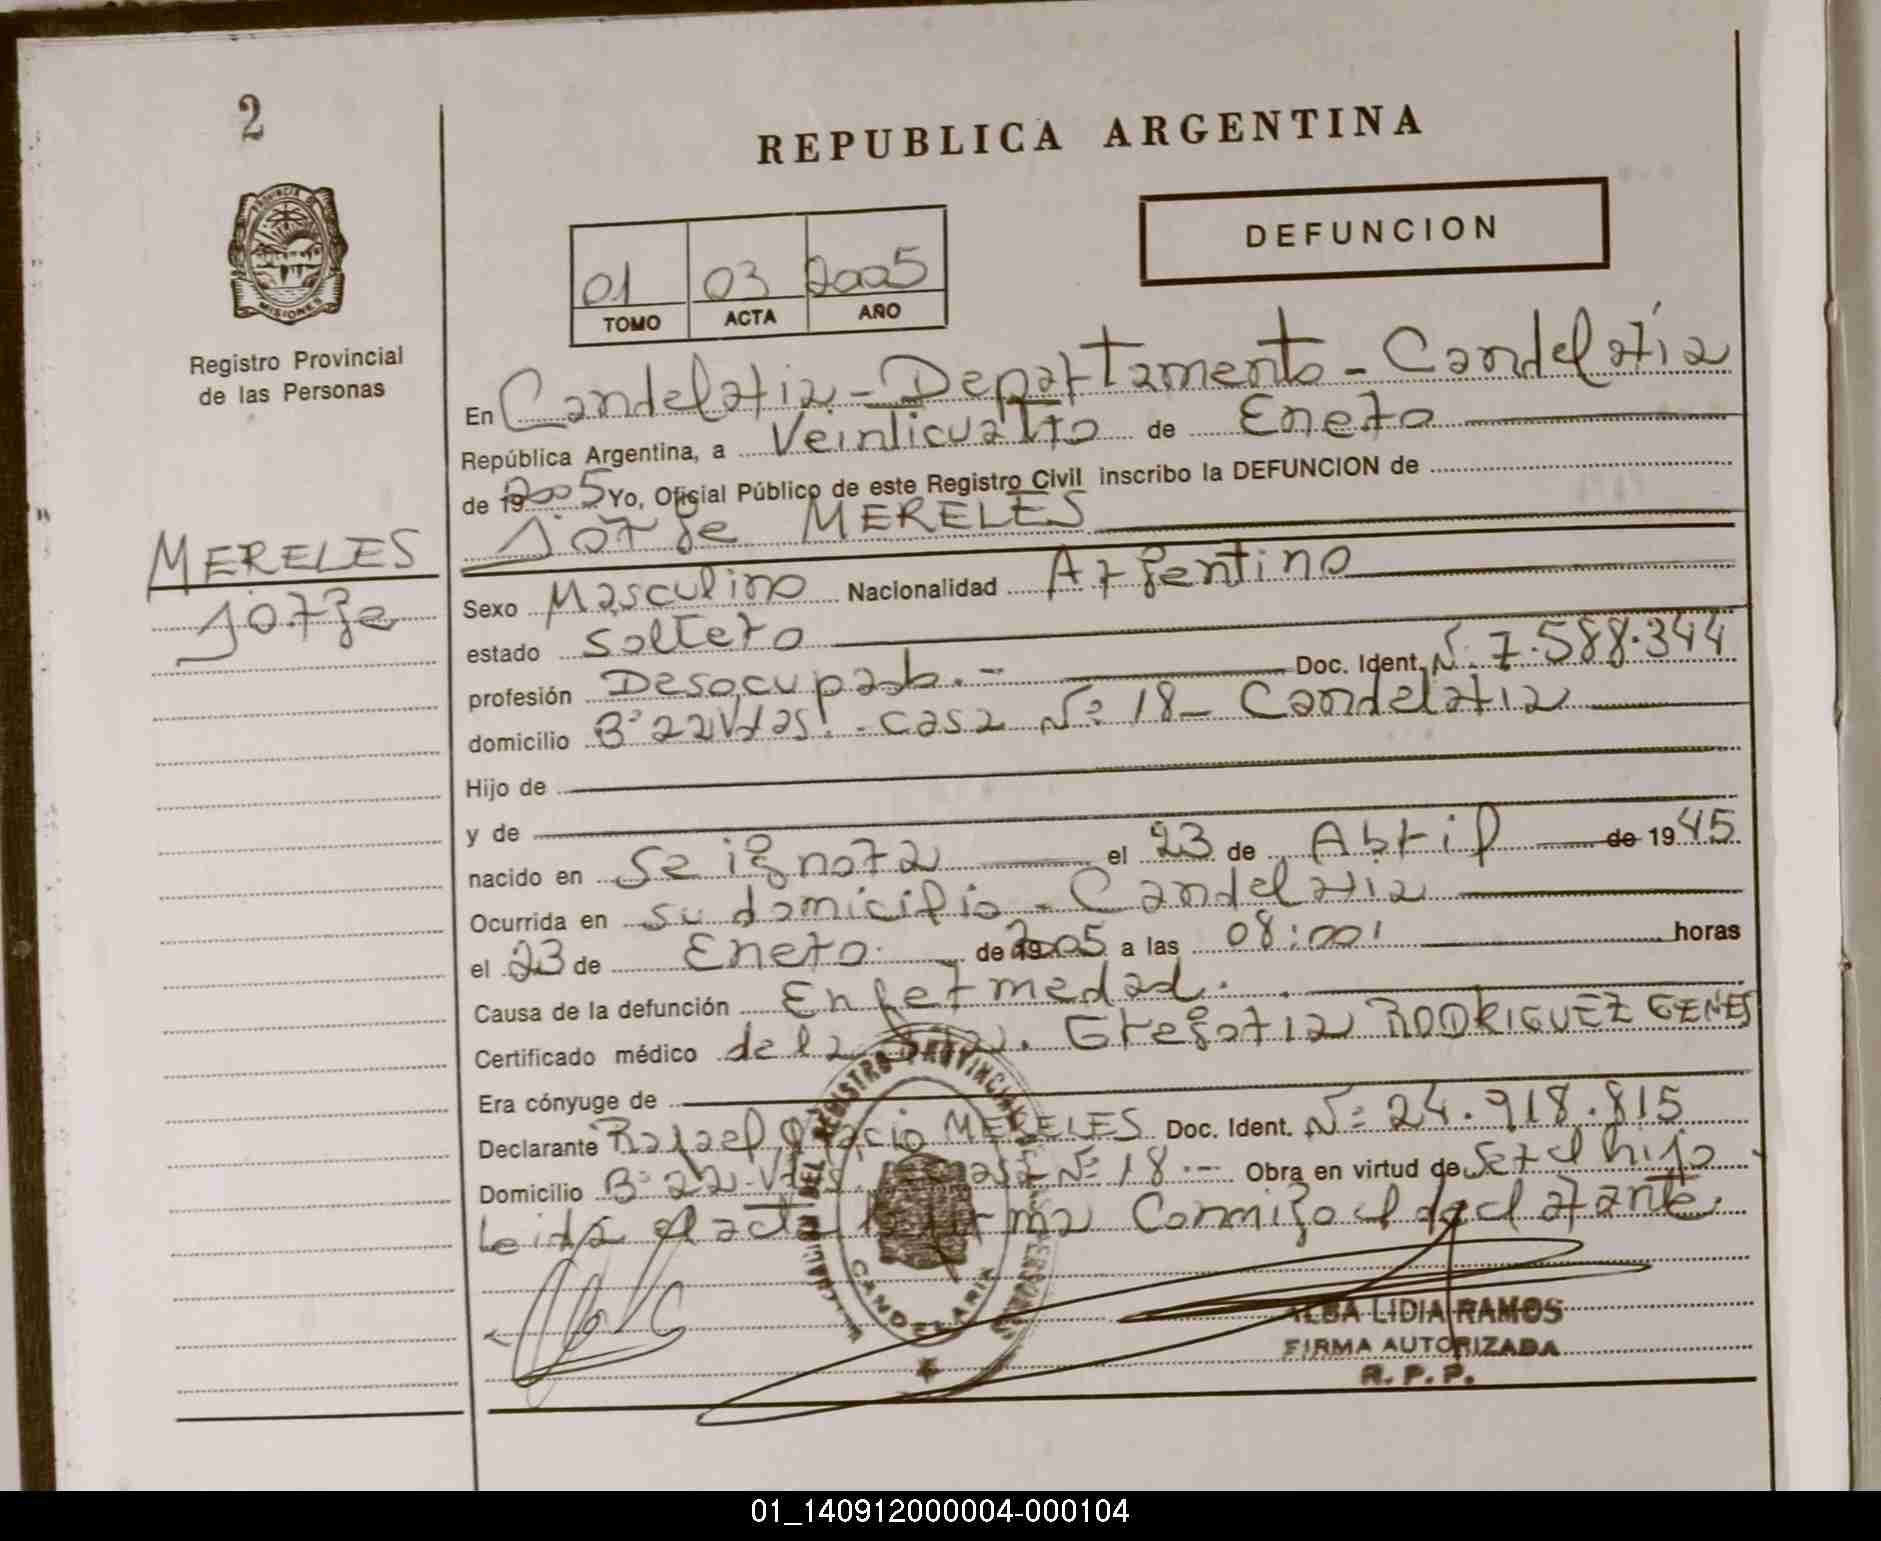 2
REPUBLICA ARGENTINA
DEFUNCION
01 03 2005
TOMO ACTA AÑO
PROVINCIA DE
MISIONES
Registro Provincial
de las Personas
En Candelaria - Departamento - Candelaria
República Argentina, a Veinticuatro de Enero
de 19 2005 Yo, Oficial Público de este Registro Civil inscribo la DEFUNCION de
Jorge MERELES
MERELES
Jorge
Sexo Masculino Nacionalidad Argentino
estado Soltero
profesión Desocupado.- Doc. Ident. Nº 7.588.344
domicilio Bº 22 Vdas. - casa Nº 18 - Candelaria
Hijo de
y de
nacido en Se ignora el 23 de Abril de 1945
Ocurrida en su domicilio - Candelaria
el 23 de Enero de 2005 a las 08:00 horas
Causa de la defunción Enfermedad.
Certificado médico de la Dra. Gregoria RODRIGUEZ GENES
Era cónyuge de
Declarante Rafael MERELES Doc. Ident. Nº 24.918.815
Domicilio Bº 22 Vdas. casa Nº 18.- Obra en virtud de Ser el hijo
Leida el acta la firma Conmigo el declarante.
CANDELARIA
ALBA LIDIA RAMOS
FIRMA AUTORIZADA
R. P. P.
01_140912000004-000104